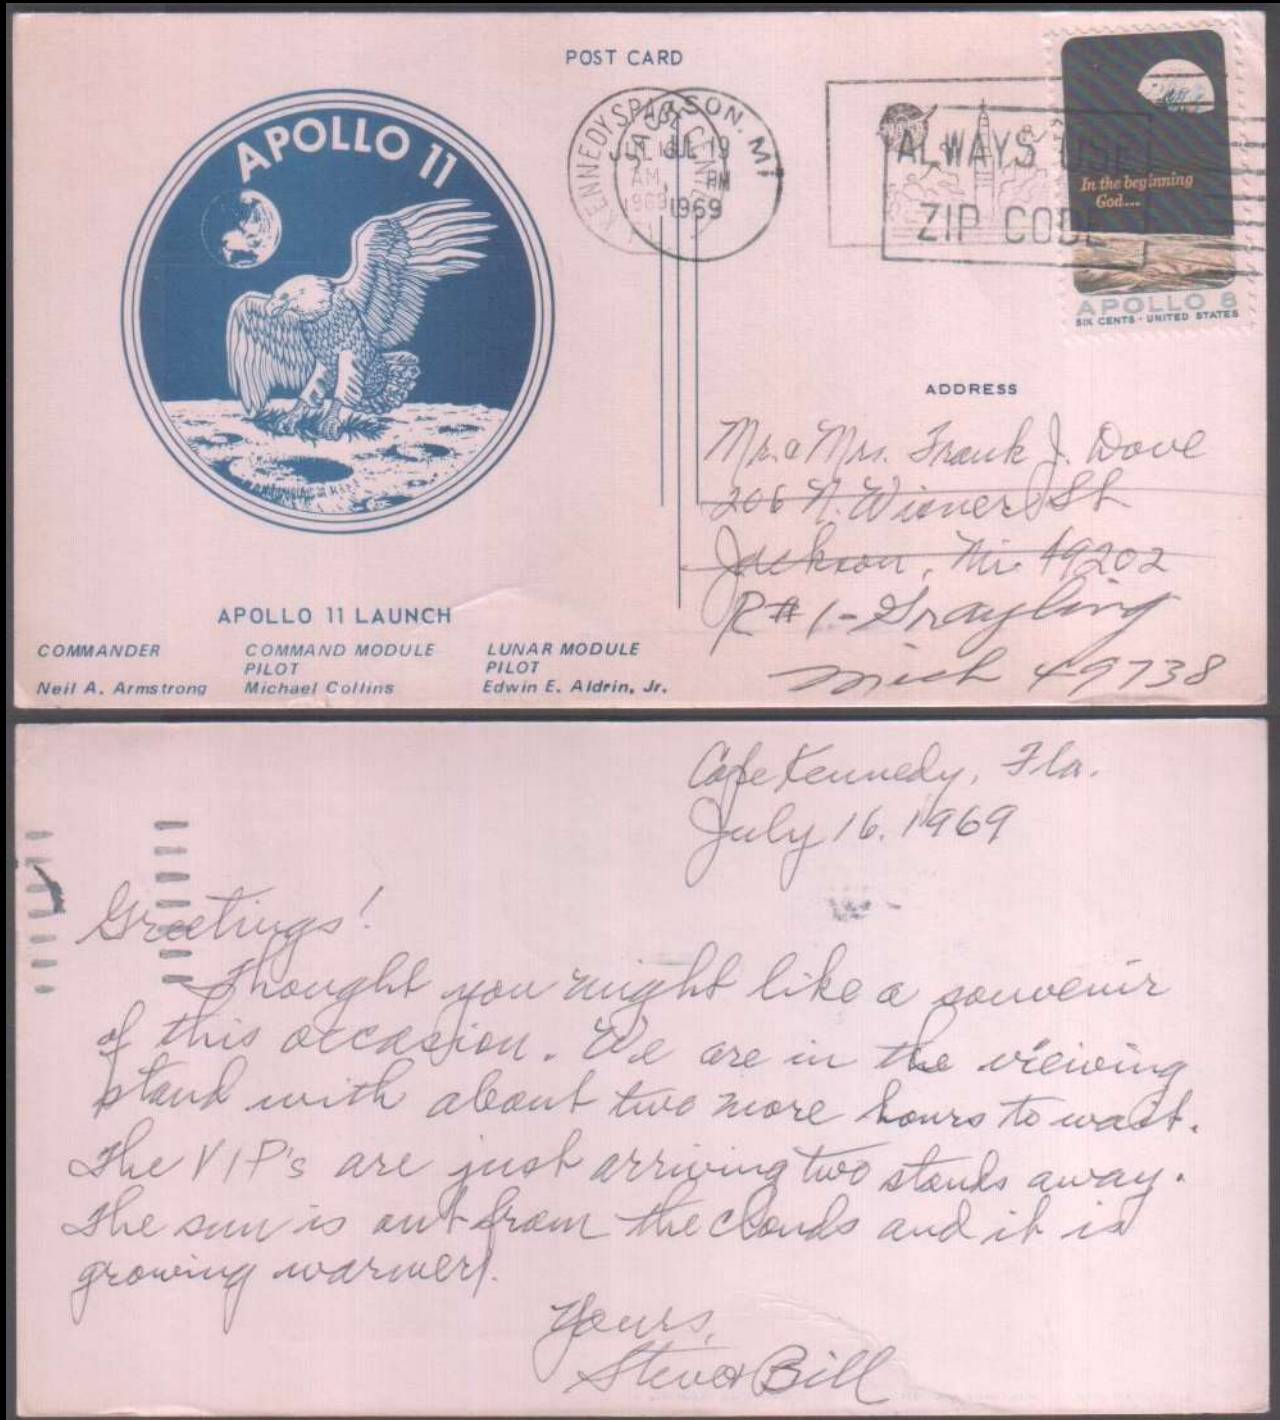 POST CARD
APOLLO 11
KENNEDY SPACE CENTER
JUL 16
AM
1969
JACKSON, MI
JUL 19
PM
1969
ALWAYS USE
ZIP CODE
In the beginning
God...
APOLLO 8
SIX CENTS · UNITED STATES
ADDRESS
Mr. & Mrs. Frank J. Dove
206 N. Wisner St
Jackson, Mi. 49202
R#1-Grayling
Mich 49738
APOLLO 11 LAUNCH
COMMANDER COMMAND MODULE LUNAR MODULE
PILOT PILOT
Neil A. Armstrong Michael Collins Edwin E. Aldrin, Jr.
Cape Kennedy, Fla.
July 16, 1969
Greetings!
Thought you might like a souvenir
of this occasion. We are in the viewing
stand with about two more hours to wait.
The VIP's are just arriving two stands away.
The sun is out from the clouds and it is
growing warmer.
Yours,
Steve & Bill